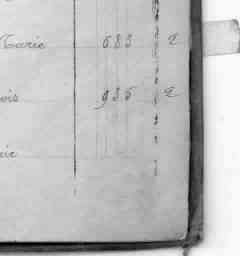 Marie 683 2
ois 935 2
rie